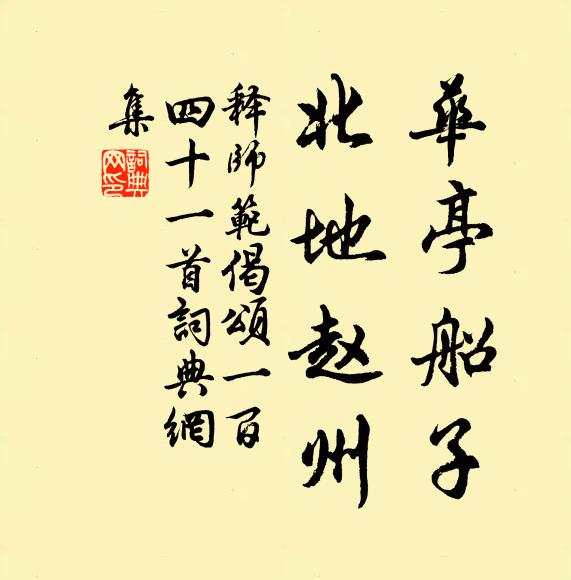 華亭船子
北地赵州
释師範偈頌一百
四十一首詞典網
集
詞典
网印